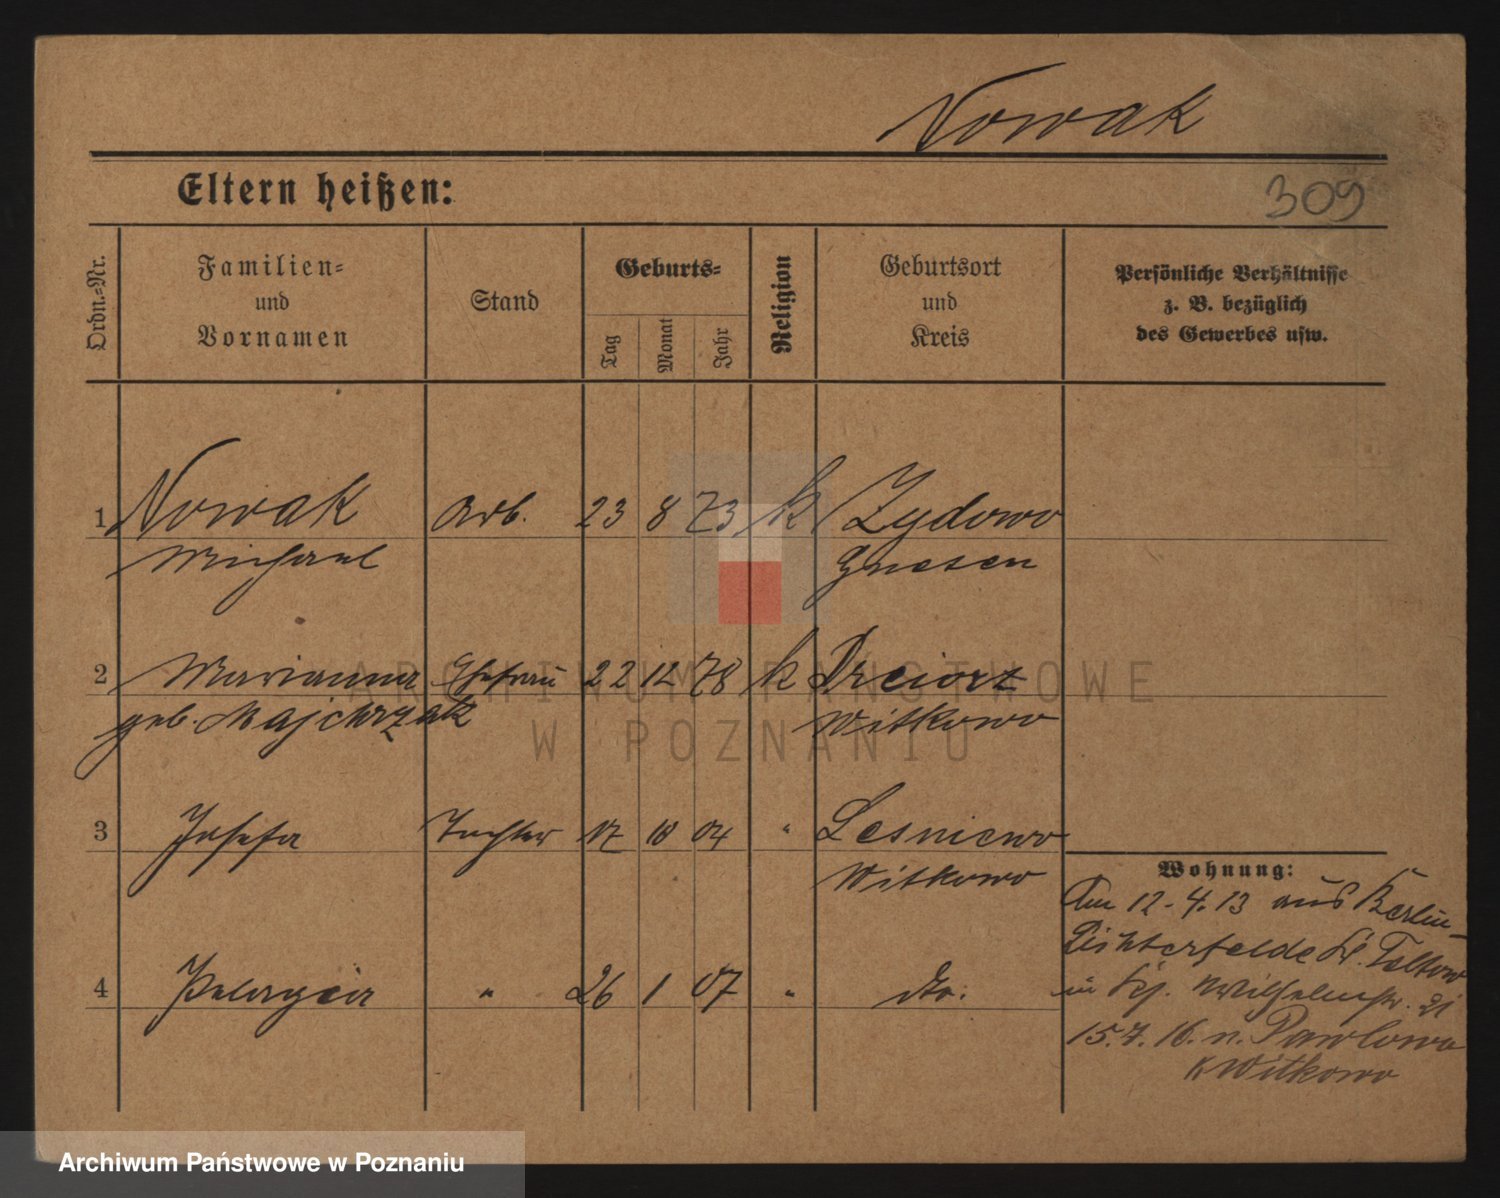 Nowak
Eltern heißen:
309
Ordn.-Nr.
Familien-
und
Vornamen
Stand
Geburts-
Tag
Monat
Jahr
Religion
Geburtsort
und
Kreis
Persönliche Verhältnisse
z. B. bezüglich
des Gewerbes usw.
1 Nowak Arb. 23 8 73 k Zydowo
Michael Gnesen
2 Marianna Ehefrau 22 12 78 k
geb. Majchrzak Witkowo
3 Josefa Tochter 17 04 " Lesniewo
Witkowo
Wohnung:
Am 12.4.13 aus Berlin-
Lichterfelde Kr. Teltow
in Wilhelmstr. 21
4 Pelagia " 26 1 07 " dto.
15.7.16. n. Pawlowo
K Witkowo
ARCHIWUM PAŃSTWOWE
W POZNANIU
Archiwum Państwowe w Poznaniu